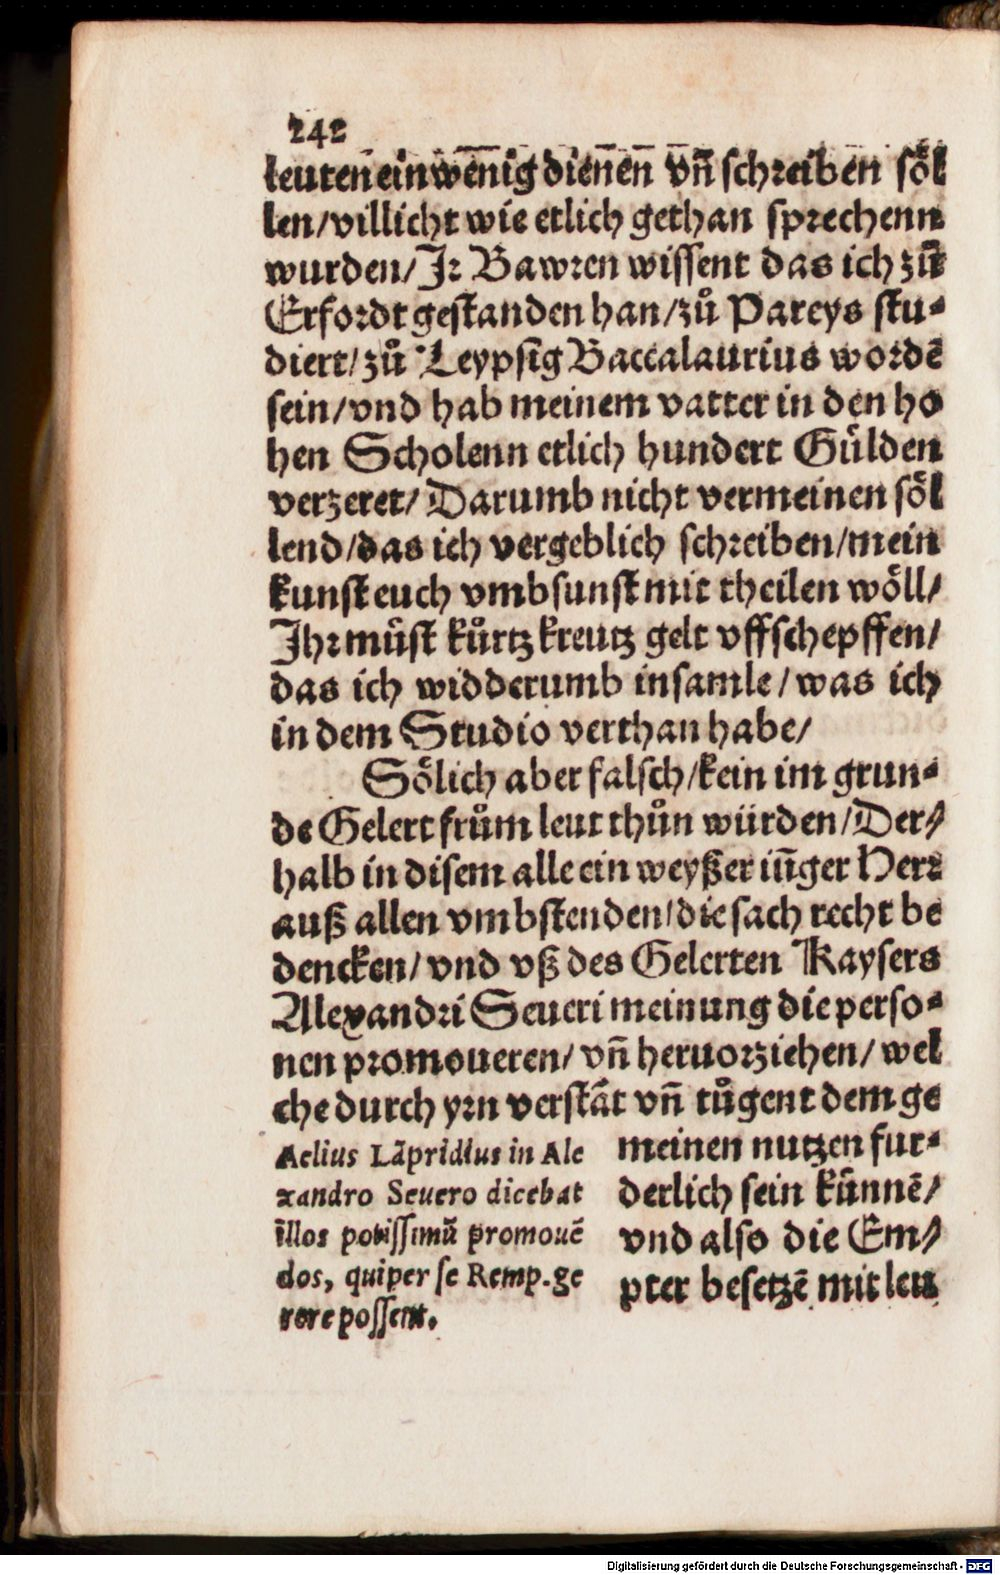 242
leuten ein wenig dienen vñ schreiben söl
len/villicht wie etlich gethan sprechenn
wurden/Jr Bawren wissent das ich zů
Erfordt gestanden han/zů Pareys stu-
diert/zů Leypsig Baccalaurius wordē
sein/vnd hab meinem vatter in den ho
hen Scholenn etlich hundert Gülden
verzeret/Darumb nicht vermeinen söl
lend/das ich vergeblich schreiben/mein
kunst euch vmbsunst mit theilen wöll/
Jhr můst kůrtz kreutz gelt vffschepffen/
das ich widderumb insamle/was ich
in dem Studio verthan habe/
Sölich aber falsch/kein im grun-
de Gelert frům leut thůn würden/Der/
halb in disem alle ein weyßer iūger Herr
auß allen vmbstenden/die sach recht be
dencken/vnd vß des Gelerten Kaysers
Alexandri Seueri meinung die perso-
nen promoueren/vñ heruorziehen/wel
che durch yrn verstāt vñ tůgent dem ge
meinen nutzen fur-
derlich sein künnē/
vnd also die Em/
pter besetzē mit leu
Aelius Lāpridius in Ale
xandro Seuero dicebat
illos potissimū promouē
dos, qui per se Remp. ge
rere possent.
Digitalisierung gefördert durch die Deutsche Forschungsgemeinschaft - DFG